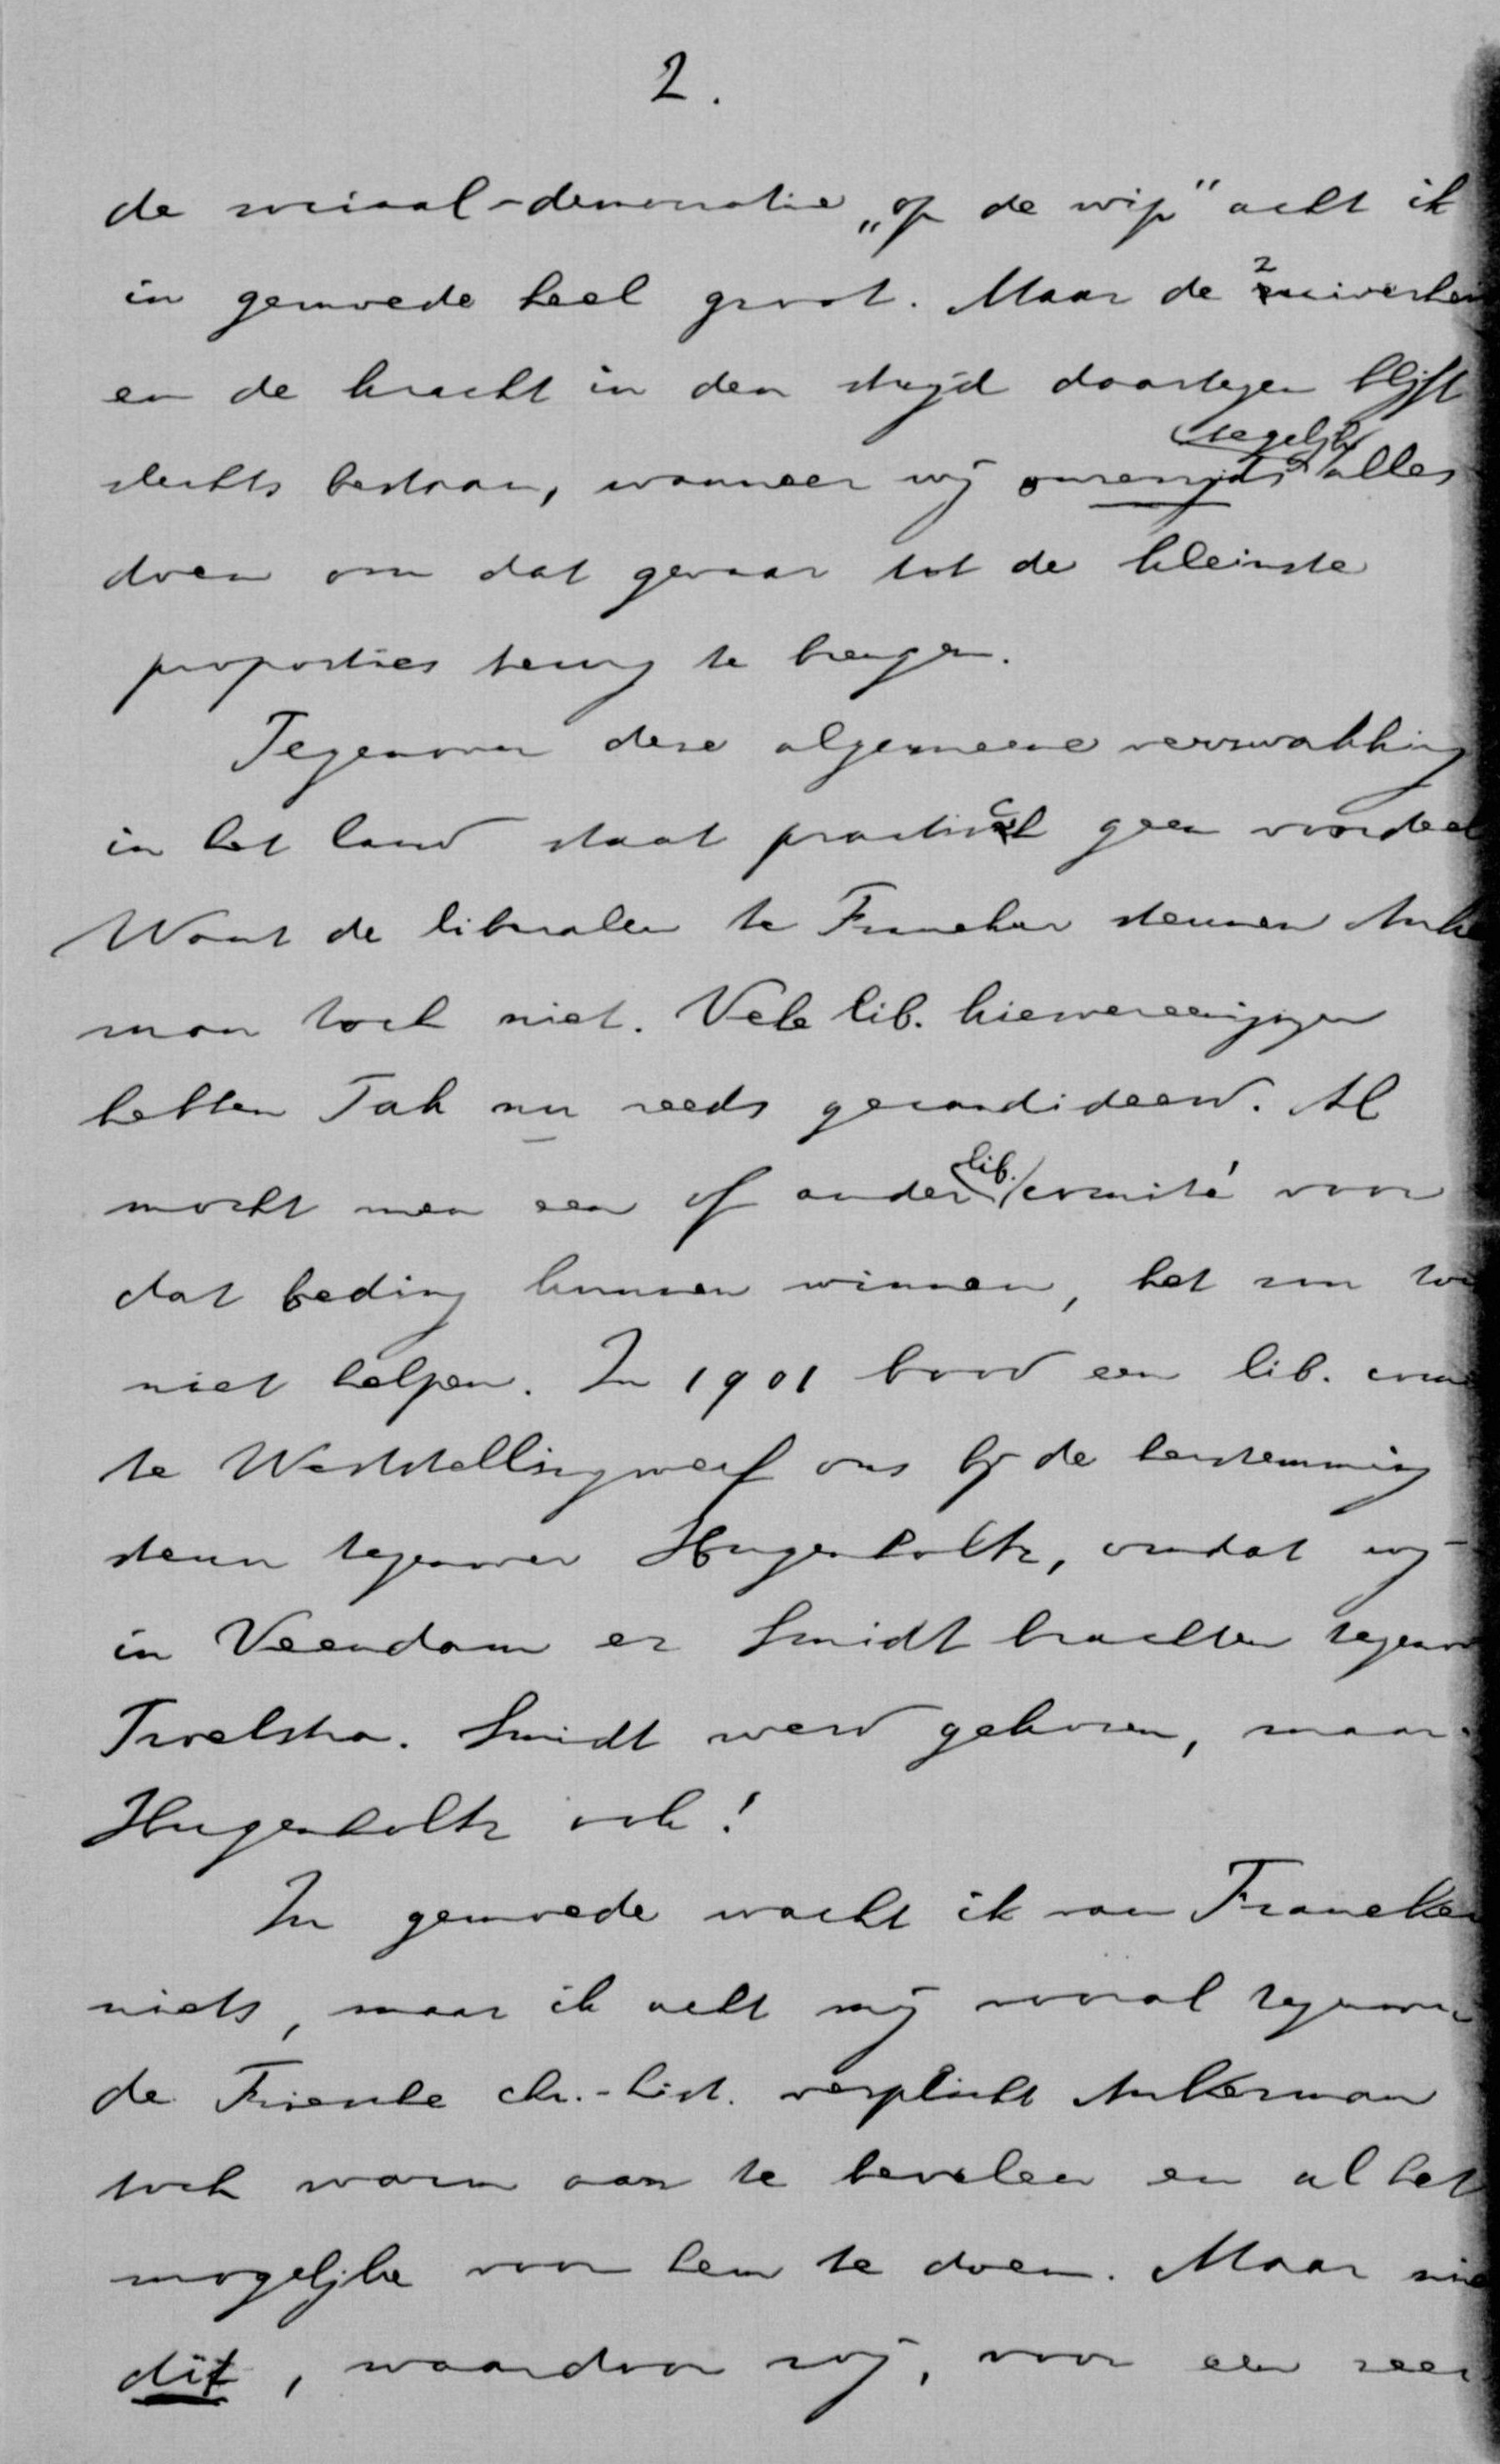 2.
de sociaal-democratie „op de wip" acht ik
in gemoede heel groot. Maar de zuiverhei
en de kracht in den strijd daartegen blijft
slechts bestaan, wanneer wij onzerzijds tegelijk alles
doen om dat gevaar tot de kleinste
proporties terug te brengen.
Tegenover deze algemeene verzwakking
in het land staat practisch geen voordeel
Want de liberalen te Franeker steunen Anke
man toch niet. Vele lib. kiesvereenigingen
hebben Tak nu reeds gecandideerd. Al
mocht men een of ander lib. comité voor
dat beding kunnen winnen, het zou to
niet helpen. In 1901 bood een lib. com
te Weststellingwerf ons bij de herstemming
steun tegenover Hugenholtz, omdat wij
in Veendam er Smidt brachten tegeno
Troelstra. Smidt werd gekozen, maar
Hugenholtz ook!
In gemoede wacht ik van Franeker
niets, maar ik acht mij vooral tegenover
de Friesche chr.-hist. verplicht Ankerman
toch warm aan te bevelen en al het
mogelijke voor hem te doen. Maar nie
dít, waardoor wij, voor een zeer